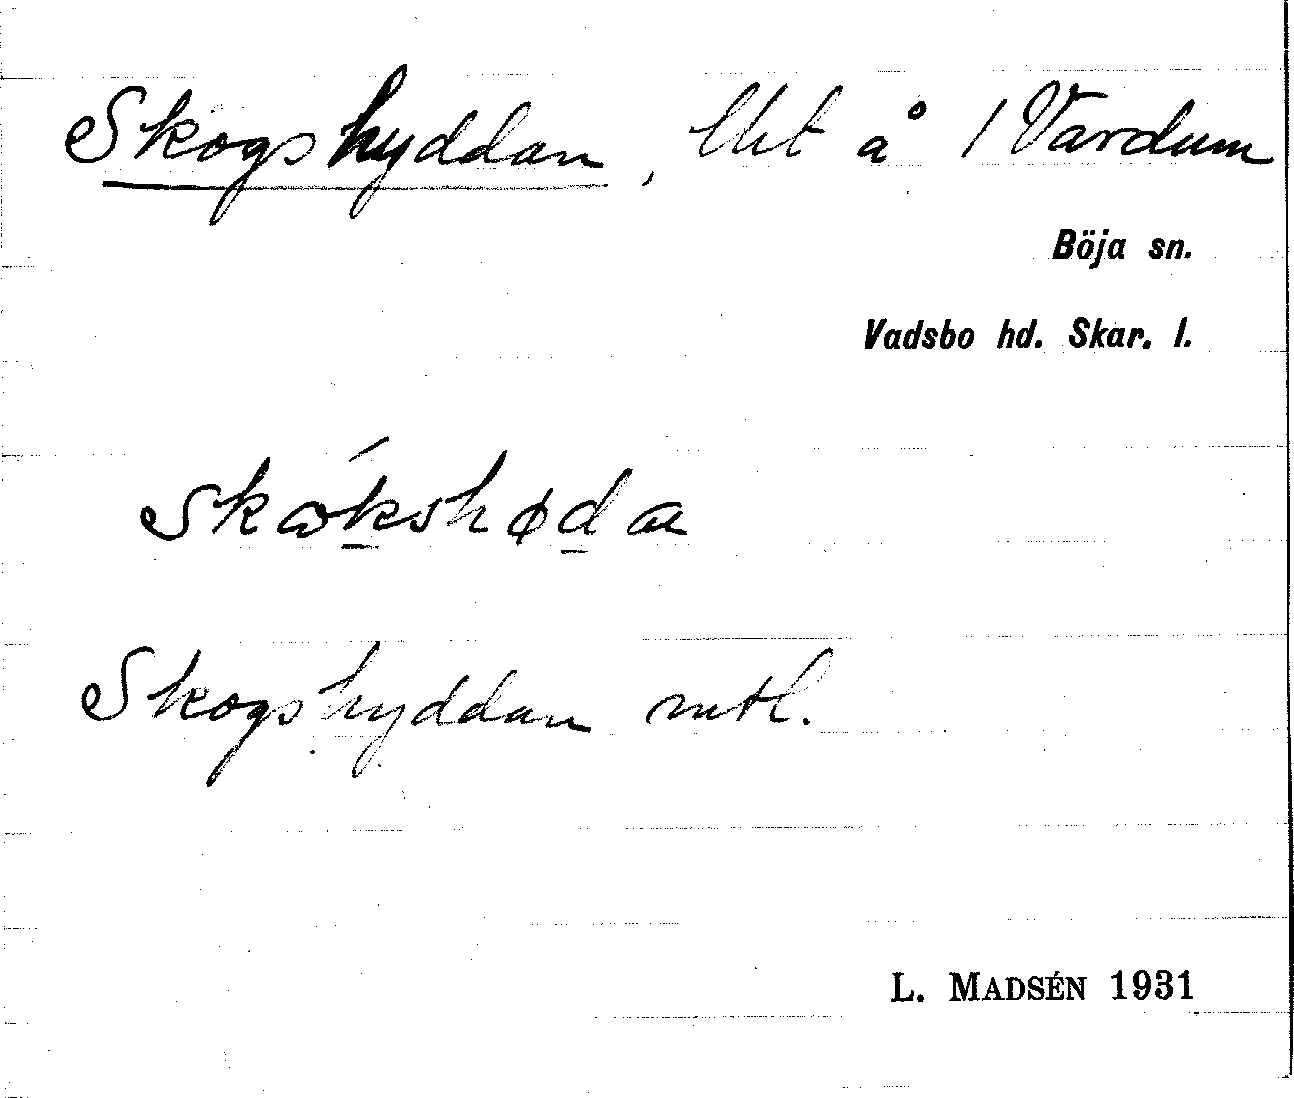 Skogshyddan, lht å 1 Vardum
Böja sn.
Vadsbo hd. Skar. l.
Skogshyddan mtl.
L. MADSÉN 1931